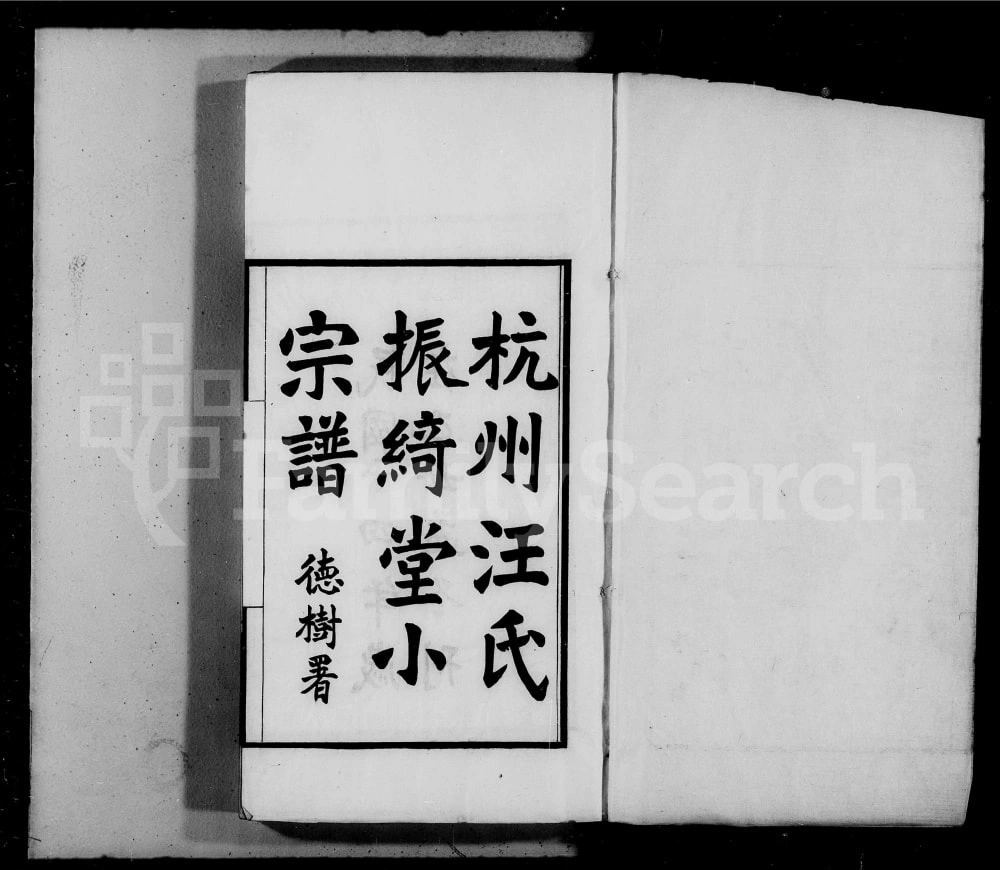 杭州汪氏
振綺堂小
宗譜 德樹署
FamilySearch